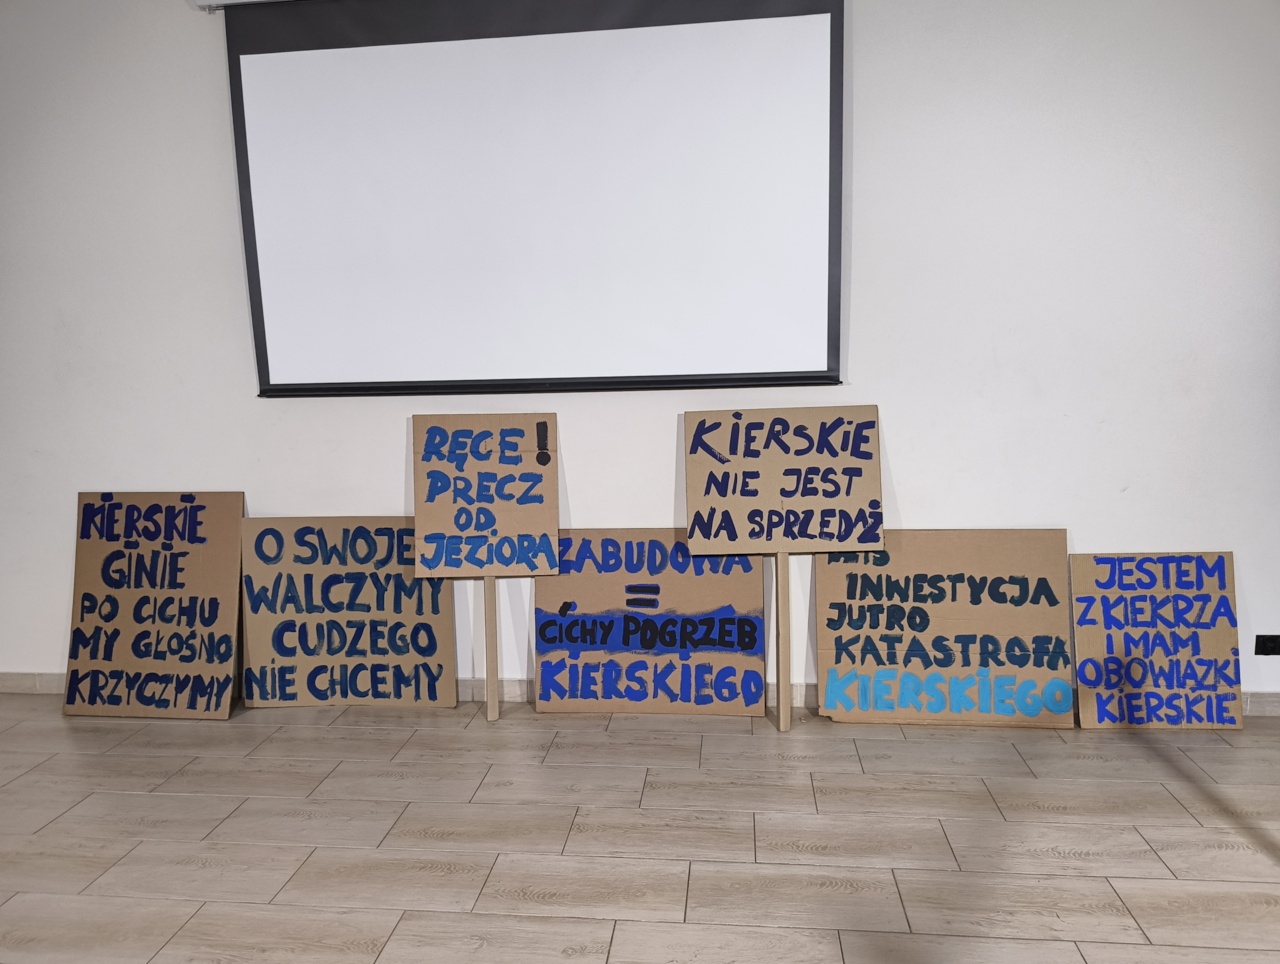 KIERSKIE
GINIE
PO CICHU
MY GŁOŚNO
KRZYCZYMY
O SWOJE
WALCZYMY
CUDZEGO
NIE CHCEMY
RĘCE!
PRECZ
OD
JEZIORA
ZABUDOWA
=
CICHY POGRZEB
KIERSKIEGO
KIERSKIE
NIE JEST
NA SPRZEDAŻ
INWESTYCJA
JUTRO
KATASTROFA
KIERSKIEGO
JESTEM
Z KIEKRZA
I MAM
OBOWIĄZKI
KIERSKIE